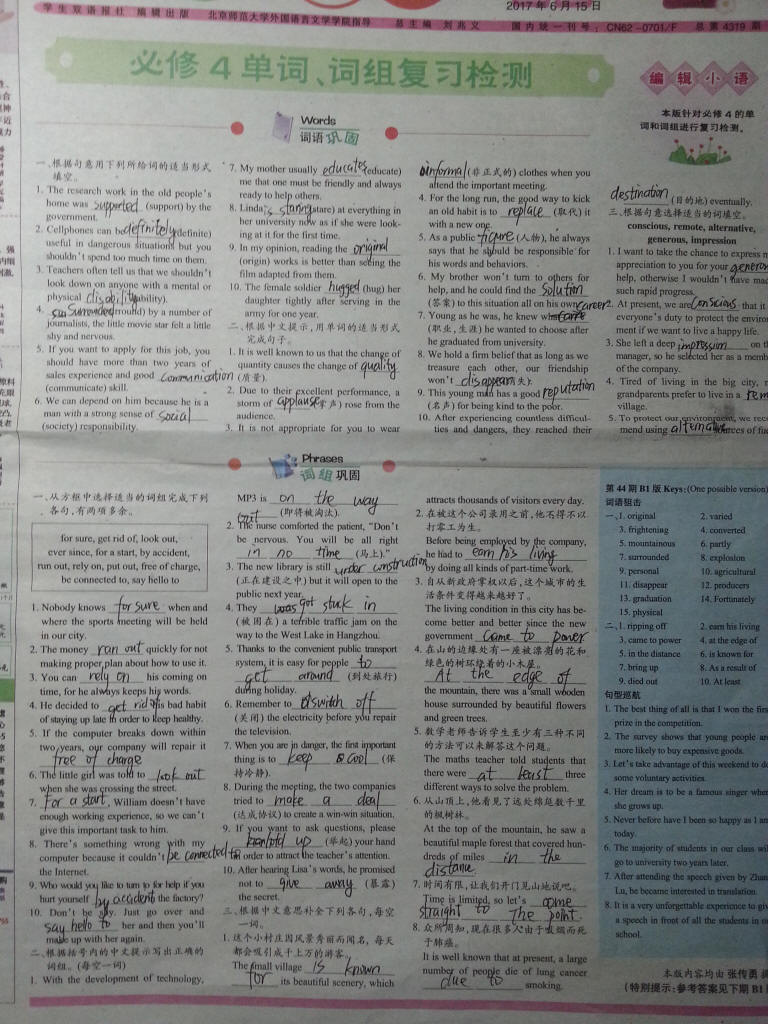 学生双语报社 编辑出版 北京师范大学外国语言文学学院指导 总主编 刘兆义 国内统一刊号：CN62-0701/F 总第4379期
2017年6月15日
必修4单词、词组复习检测
编辑小语
本版针对必修4的单
词和词组进行复习检测。
Words
词语巩固
一、根据句意用下列所给词的适当形式
填空。
1. The research work in the old people's
home was supported (support) by the
government.
2. Cellphones can be definitely (definite)
useful in dangerous situations but you
shouldn't spend too much time on them.
3. Teachers often tell us that we shouldn't
look down on anyone with a mental or
physical disability
4. Surrounded (round) by a number of
journalists, the little movie star felt a little
shy and nervous.
5. If you want to apply for this job, you
should have more than two years of
sales experience and good communication
(communicate) skill.
6. We can depend on him because he is a
man with a strong sense of social
(society) responsibility.
7. My mother usually educates (educate)
me that one must be friendly and always
ready to help others.
8. Linda's staring (stare) at everything in
her university now as if she were look-
ing at it for the first time.
9. In my opinion, reading the original
(origin) works is better than seeing the
film adapted from them.
10. The female soldier hugged (hug) her
daughter tightly after serving in the
army for one year.
二、根据中文提示，用单词的适当形式
完成句子。
1. It is well known to us that the change of
quantity causes the change of quality
(质量).
2. Due to their excellent performance, a
storm of applause (掌声) rose from the
audience.
3. It is not appropriate for you to wear
informal (非正式的) clothes when you
attend the important meeting.
4. For the long run, the good way to kick
an old habit is to replace (取代) it
with a new one.
5. As a public figure (人物), he always
says that he should be responsible for
his words and behaviors.
6. My brother won't turn to others for
help, and he could find the solution
(答案) to this situation all on his own.
7. Young as he was, he knew what career
(职业,生涯) he wanted to choose after
he graduated from university.
8. We hold a firm belief that as long as we
treasure each other, our friendship
won't disappear
9. This young man has a good reputation
(名声) for being kind to the poor.
10. After experiencing countless difficul-
ties and dangers, they reached their
destination (目的地) eventually.
三、根据句意选择适当的词填空。
conscious, remote, alternative,
generous, impression
1. I want to take the chance to express m
appreciation to you for your generous
help, otherwise I wouldn't have ma
such rapid progress.
2. At present, we are conscious that it
everyone's duty to protect the environ
ment if we want to live a happy life.
3. She left a deep impression on th
manager, so he selected her as a membe
of the company.
4. Tired of living in the big city, m
grandparents prefer to live in a rem
village.
5. To protect our environment, we reco
mend using alternative sources of fue
Phrases
词组巩固
一、从方框中选择适当的词组完成下列
各句，有两项多余。
for sure, get rid of, look out,
ever since, for a start, by accident,
run out, rely on, put out, free of charge,
be connected to, say hello to
1. Nobody knows for sure when and
where the sports meeting will be held
in our city.
2. The money ran out quickly for not
making proper plan about how to use it.
3. You can rely on his coming on
time, for he always keeps his words.
4. He decided to get rid of his bad habit
of staying up late in order to keep healthy.
5. If the computer breaks down within
two years, our company will repair it
free of charge
6. The little girl was told to look out
when she was crossing the street.
7. For a start, William doesn't have
enough working experience, so we can't
give this important task to him.
8. There's something wrong with my
computer because it couldn't be connected to
the Internet.
9. Who would you like to turn to for help if you
hurt yourself by accident the factory?
10. Don't be shy. Just go over and
say hello to her and then you'll
make up with her again.
二、根据括号内的中文提示写出正确的
词组。(每空一词)
1. With the development of technology,
MP3 is on the way
out (即将被淘汰).
2. The nurse comforted the patient, "Don't
be nervous. You will be all right
in no time (马上)."
3. The new library is still under construction
(正在建设之中) but it will open to the
public next year.
4. They got stuck in
(被困在) a terrible traffic jam on the
way to the West Lake in Hangzhou.
5. Thanks to the convenient public transport
system, it is easy for people to
get around (到处旅行)
during holiday.
6. Remember to switch off
(关闭) the electricity before you repair
the television.
7. When you are in danger, the first important
thing is to keep cool (保
持冷静).
8. During the meeting, the two companies
tried to make a deal
(达成协议) to create a win-win situation.
9. If you want to ask questions, please
hold up (举起) your hand
in order to attract the teacher's attention.
10. After hearing Lisa's words, he promised
not to give away (暴露)
the secret.
三、根据中文意思补全下列各句，每空
一词。
1. 这个小村庄因风景秀丽而闻名，每天
都会吸引成千上万的游客。
The small village is known
for its beautiful scenery, which
attracts thousands of visitors every day.
2. 在被这个公司录用之前，他不得不以
打零工为生。
Before being employed by the company,
he had to earn his living
by doing all kinds of part-time work.
3. 自从新政府掌权以后，这个城市的生
活条件变得越来越好了。
The living condition in this city has be-
come better and better since the new
government came to power
4. 在山的边缘处有一座被漂亮的花和
绿色的树环绕着的小木屋。
At the edge of
the mountain, there was a small wooden
house surrounded by beautiful flowers
and green trees.
5. 数学老师告诉学生至少有三种不同
的方法可以来解答这个问题。
The maths teacher told students that
there were at least three
different ways to solve the problem.
6. 从山顶上，他看见了远处绵延数千里
的枫树林。
At the top of the mountain, he saw a
beautiful maple forest that covered hun-
dreds of miles in the
distance
7. 时间有限，让我们开门见山地说吧。
Time is limited, so let's come
straight to The point.
8. 众所周知，现在很多人由于吸烟而死
于肺癌。
It is well known that at present, a large
number of people die of lung cancer
due to smoking.
第44期B1版 Keys: (One possible version)
词语狙击
一、1. original 2. varied
3. frightening 4. converted
5. mountainous 6. partly
7. surrounded 8. explosion
9. personal 10. agricultural
11. disappear 12. producers
13. graduation 14. Fortunately
15. physical
二、1. ripping off 2. earn his living
3. came to power 4. at the edge of
5. in the distance 6. is known for
7. bring up 8. As a result of
9. died out 10. At least
句型巡航
1. The best thing of all is that I won the firs
prize in the competition.
2. The survey shows that young people are
more likely to buy expensive goods.
3. Let's take advantage of this weekend to do
some voluntary activities.
4. Her dream is to be a famous singer when
she grows up.
5. Never before have I been so happy as I am
today.
6. The majority of students in our class will
go to university two years later.
7. After attending the speech given by Zhan
Lu, he became interested in translation.
8. It is a very unforgettable experience to giv
a speech in front of all the students in ou
school.
本版内容由 张传勇 提
(特别提示：参考答案见下期B1